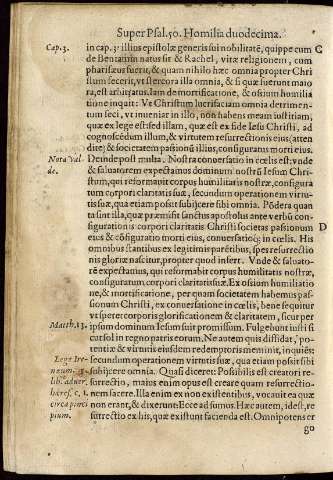 Super Psal.50. Homilia duodecima.
Cap.3. in cap.3. illius epistolæ generis sui nobilitatē, quippe cum C
de Beniamin natus sit & Rachel, vitæ religionem, cum
pharisæus fuerit, & quam nihilo hæc omnia propter Chri
stum fecerit, vt stercora illa omnia, & si quæ fuerunt maio
ra, est arbitratus. Iam de mortificatione, & ossium humilia
tione inquit: Vt Christum lucrifaciam omnia detrimen-
tum feci, vt inueniar in illo, non habens meam iustitiam,
quæ ex lege est sed illam, quæ est ex fide Iesu Christi, ad
cognoscēdum illum, & virtutem resurrectionis eius (atten
dite) & societatem passionū illius, configuratus morti eius.
Nota val- Deinde post multa. Nostra conuersatio in cœlis est: vnde
de. & saluatorem expectamus dominum nostrū Iesum Chri-
stum, qui reformabit corpus humilitatis nostræ, configura
tum corpori claritatis suæ, secundum operationem virtu-
tis suæ, qua etiam possit subijcere sibi omnia. Pōdera quan
ta sint illa, quæ præmisit sanctus apostolus ante verbū con-
figurationis corpori claritatis Christi societas passionum D
eius & cōfiguratio morti eius, conuersatioq; in cœlis. His
omnibus stantibus ex legitimis parētibus, spes resurrectio
nis gloriæ nascitur, propter quod infert. Vnde & saluato-
rē expectamus, qui reformabit corpus humilitatis nostræ,
configuratum corpori claritatis suæ. Ex ossium humiliatio
ne, & mortificatione, per quam societatem habemus pas-
sionum Christi, ex conuersatione in cœlis, bene sequitur
vt speret corporis glorificationem & claritatem, sicut per
Matth.13. ipsum dominum Iesum suit promissum. Fulgebunt iusti si
cut sol in regno patris eorum. Ne autem quis diffidat, po-
tentiæ & virtutis eiusdem redemptoris meminit, inquiēs
Lege Ire- secundum operationem virtutis suæ, qua etiam possit sibi
neum. 5. subijcere omnia. Quasi diceret: Possibilis est creatori re-
lib. aduer. surrectio, maius enim opus est creare quam resurrectio-
hæres. c. 1. nem facere. Illa enim ex non existentibus, vocauit ea quæ
circa princi non erant, & dixerunt Ecce adsumus. Hæc autem, id est, re
pium. surrectio ex his, quæ existunt facienda est. Omnipotens er
go